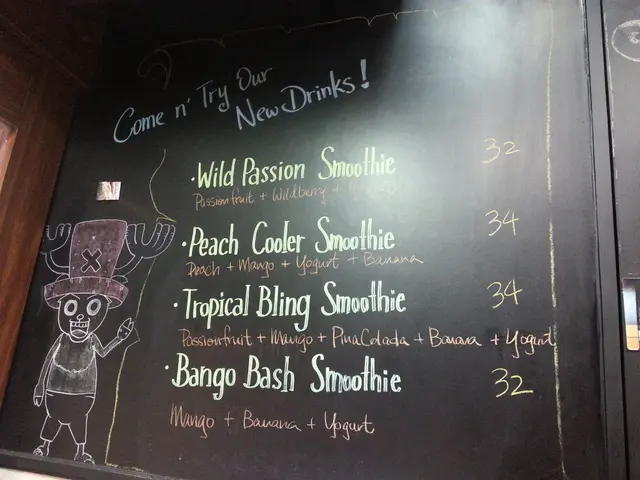 Come n' Try Our
New Drinks!
· Wild Passion Smoothie 32
Passionfruit + Wildberry +
· Peach Cooler Smoothie 34
Peach + Mango + Yogurt + Banana
· Tropical Bling Smoothie 34
Passionfruit + Mango + PinaColada + Banana + Yogurt
· Bango Bash Smoothie 32
Mango + Banana + Yogurt